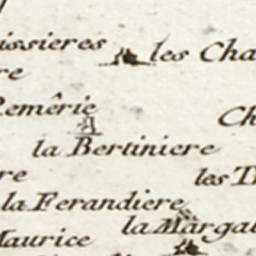 issieres les Cha
re
Remêrie
Ch
la Bertiniere
re les T
la Ferandiere
la Margal
Maurice